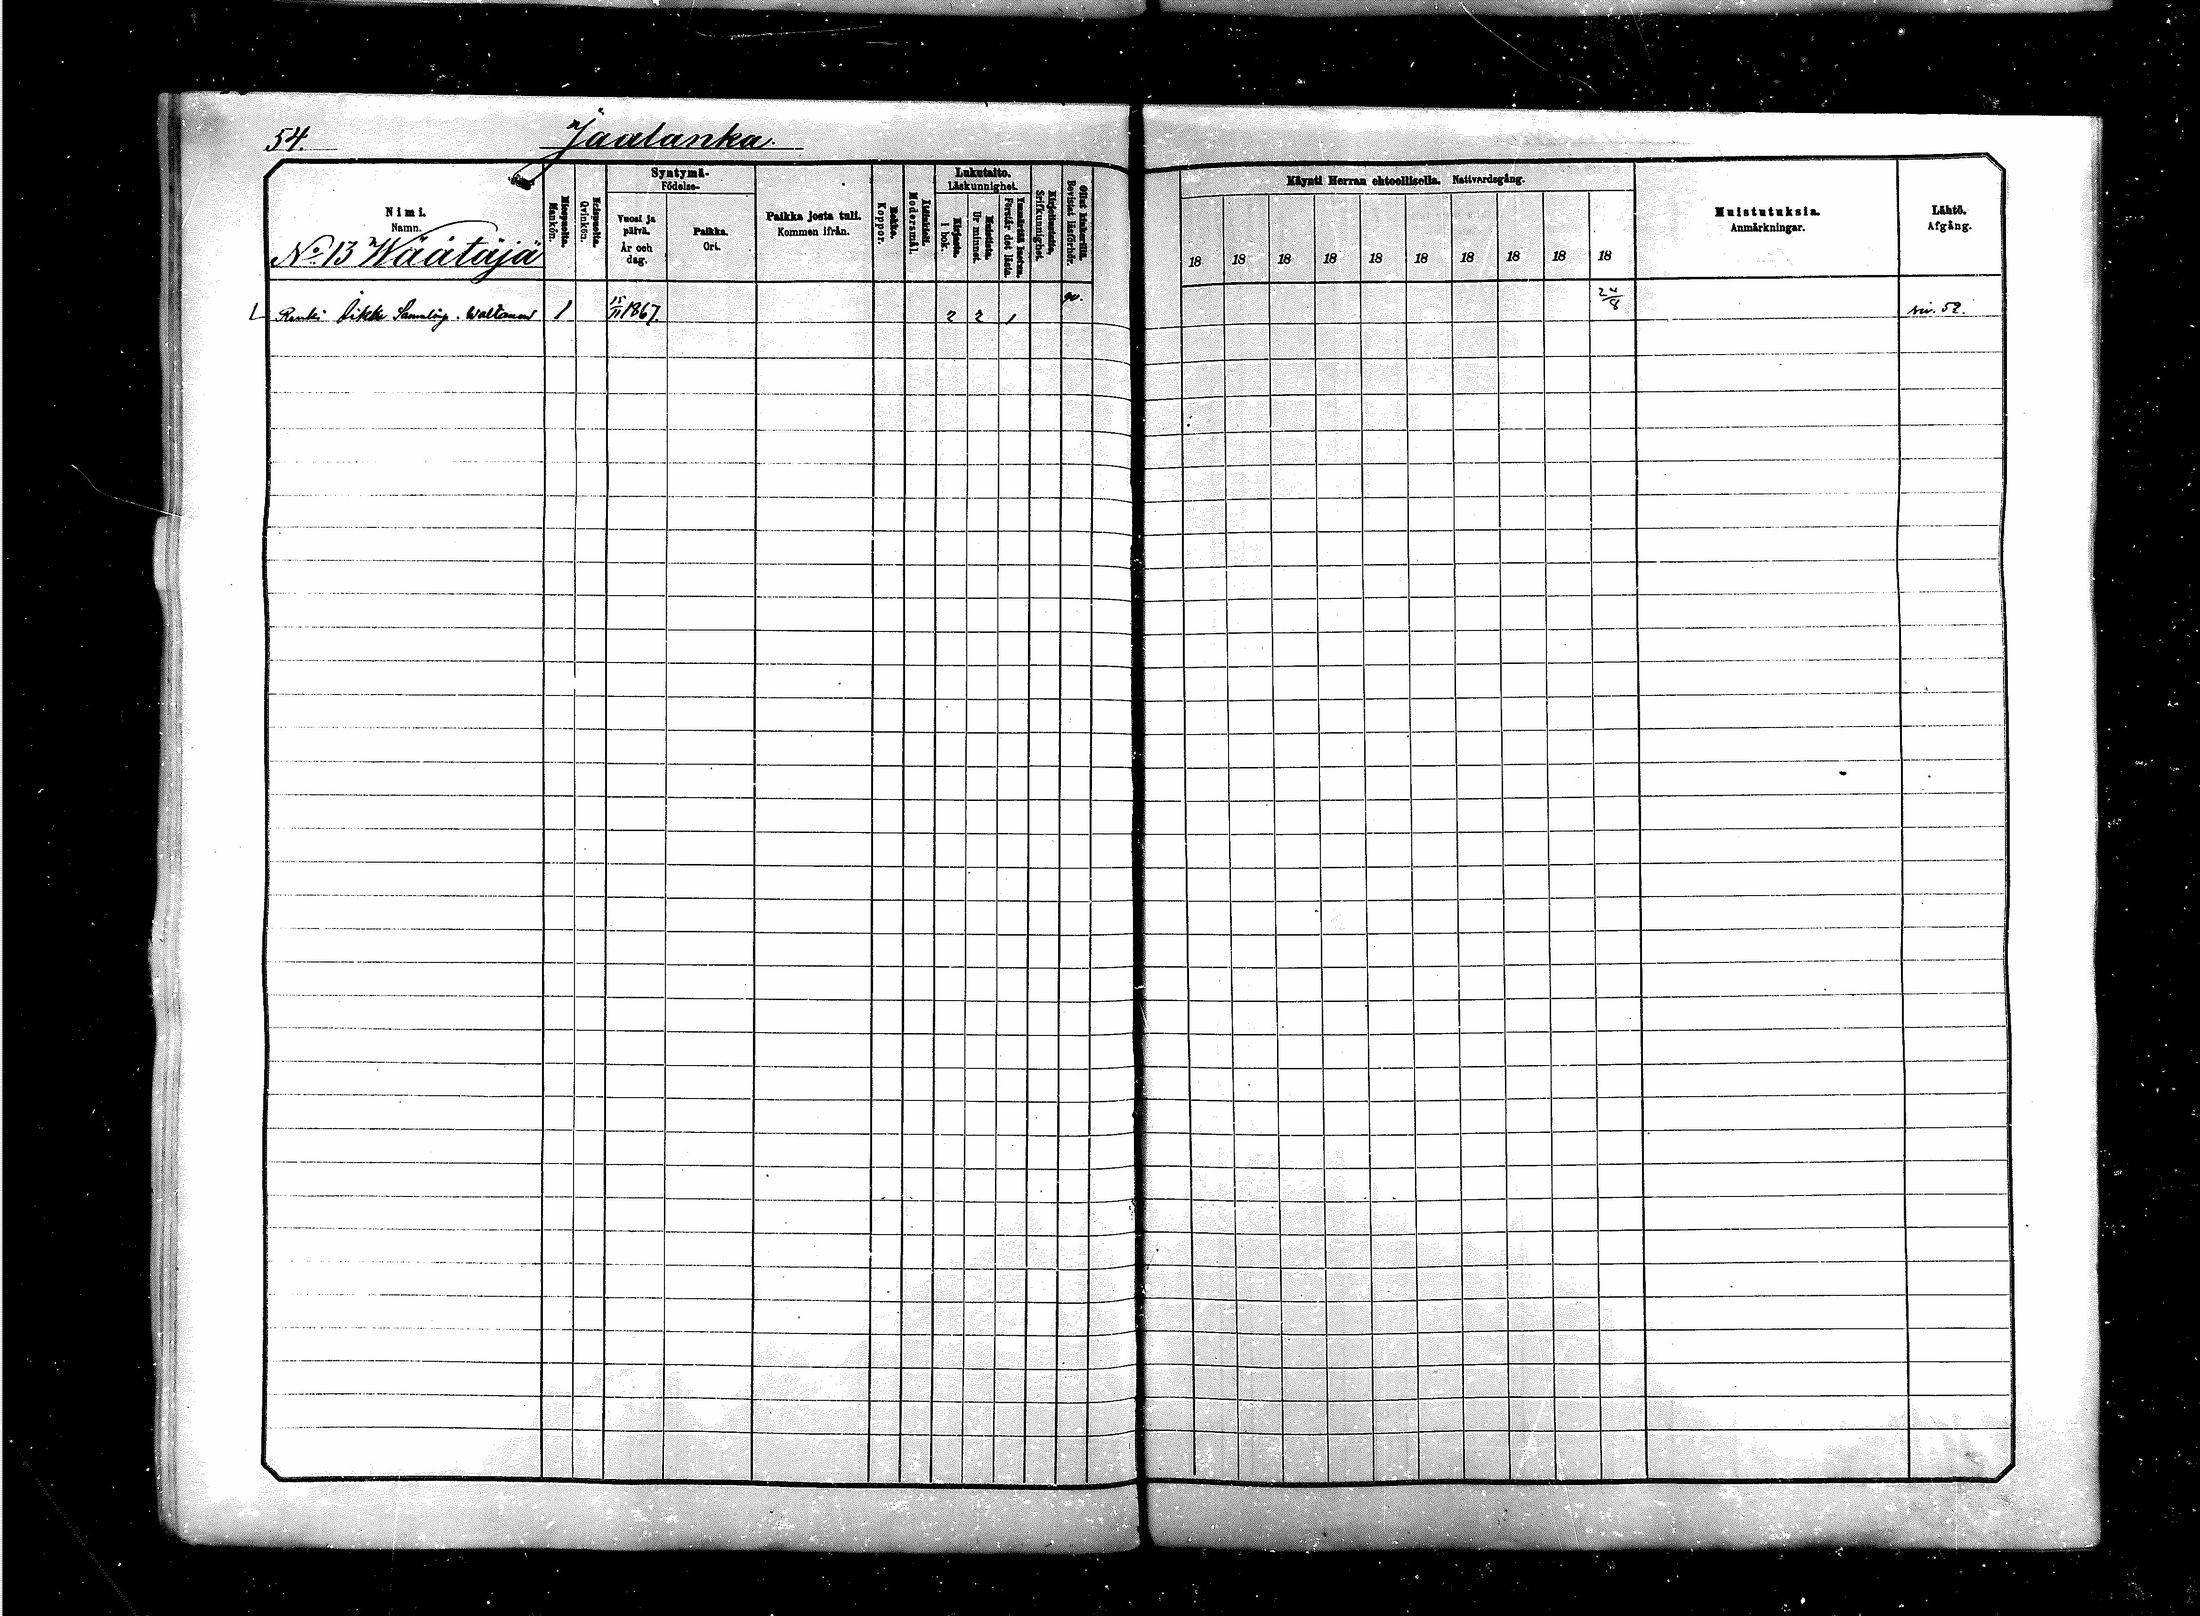 54.
Jaalanka.
Nimi.
Namn.
No 13 Wäätäjä
Miespuolia.
Mankön.
Vaimopuolia.
Qvinkön.
Syntymä-
Födelse-
Vuosi ja päivä.
År och dag.
Paikka.
Ort.
Paikka josta tuli.
Kommen ifrån.
Rokko.
Koppor.
Äidinkieli.
Modersmål.
Lukutaito.
Läskunnighet.
Kirjasta.
I bok.
Muistista.
Ur minnet.
Ymmärtää lukema.
Förstår det lästa.
Kirjoitustaito.
Skrifkunnighet.
Ollut lukukerilla.
Bevistat läsförhör.
Käynti Herran ehtoollisella. Nattvardsgång.
18 18 18 18 18 18 18 18 18 18
Muistutuksia.
Anmärkningar.
Lähtö.
Afgång.
Renki Samelinp. Waltanen 1 15/11 1867. 2 2 1 90. 24/8 siv. 52.